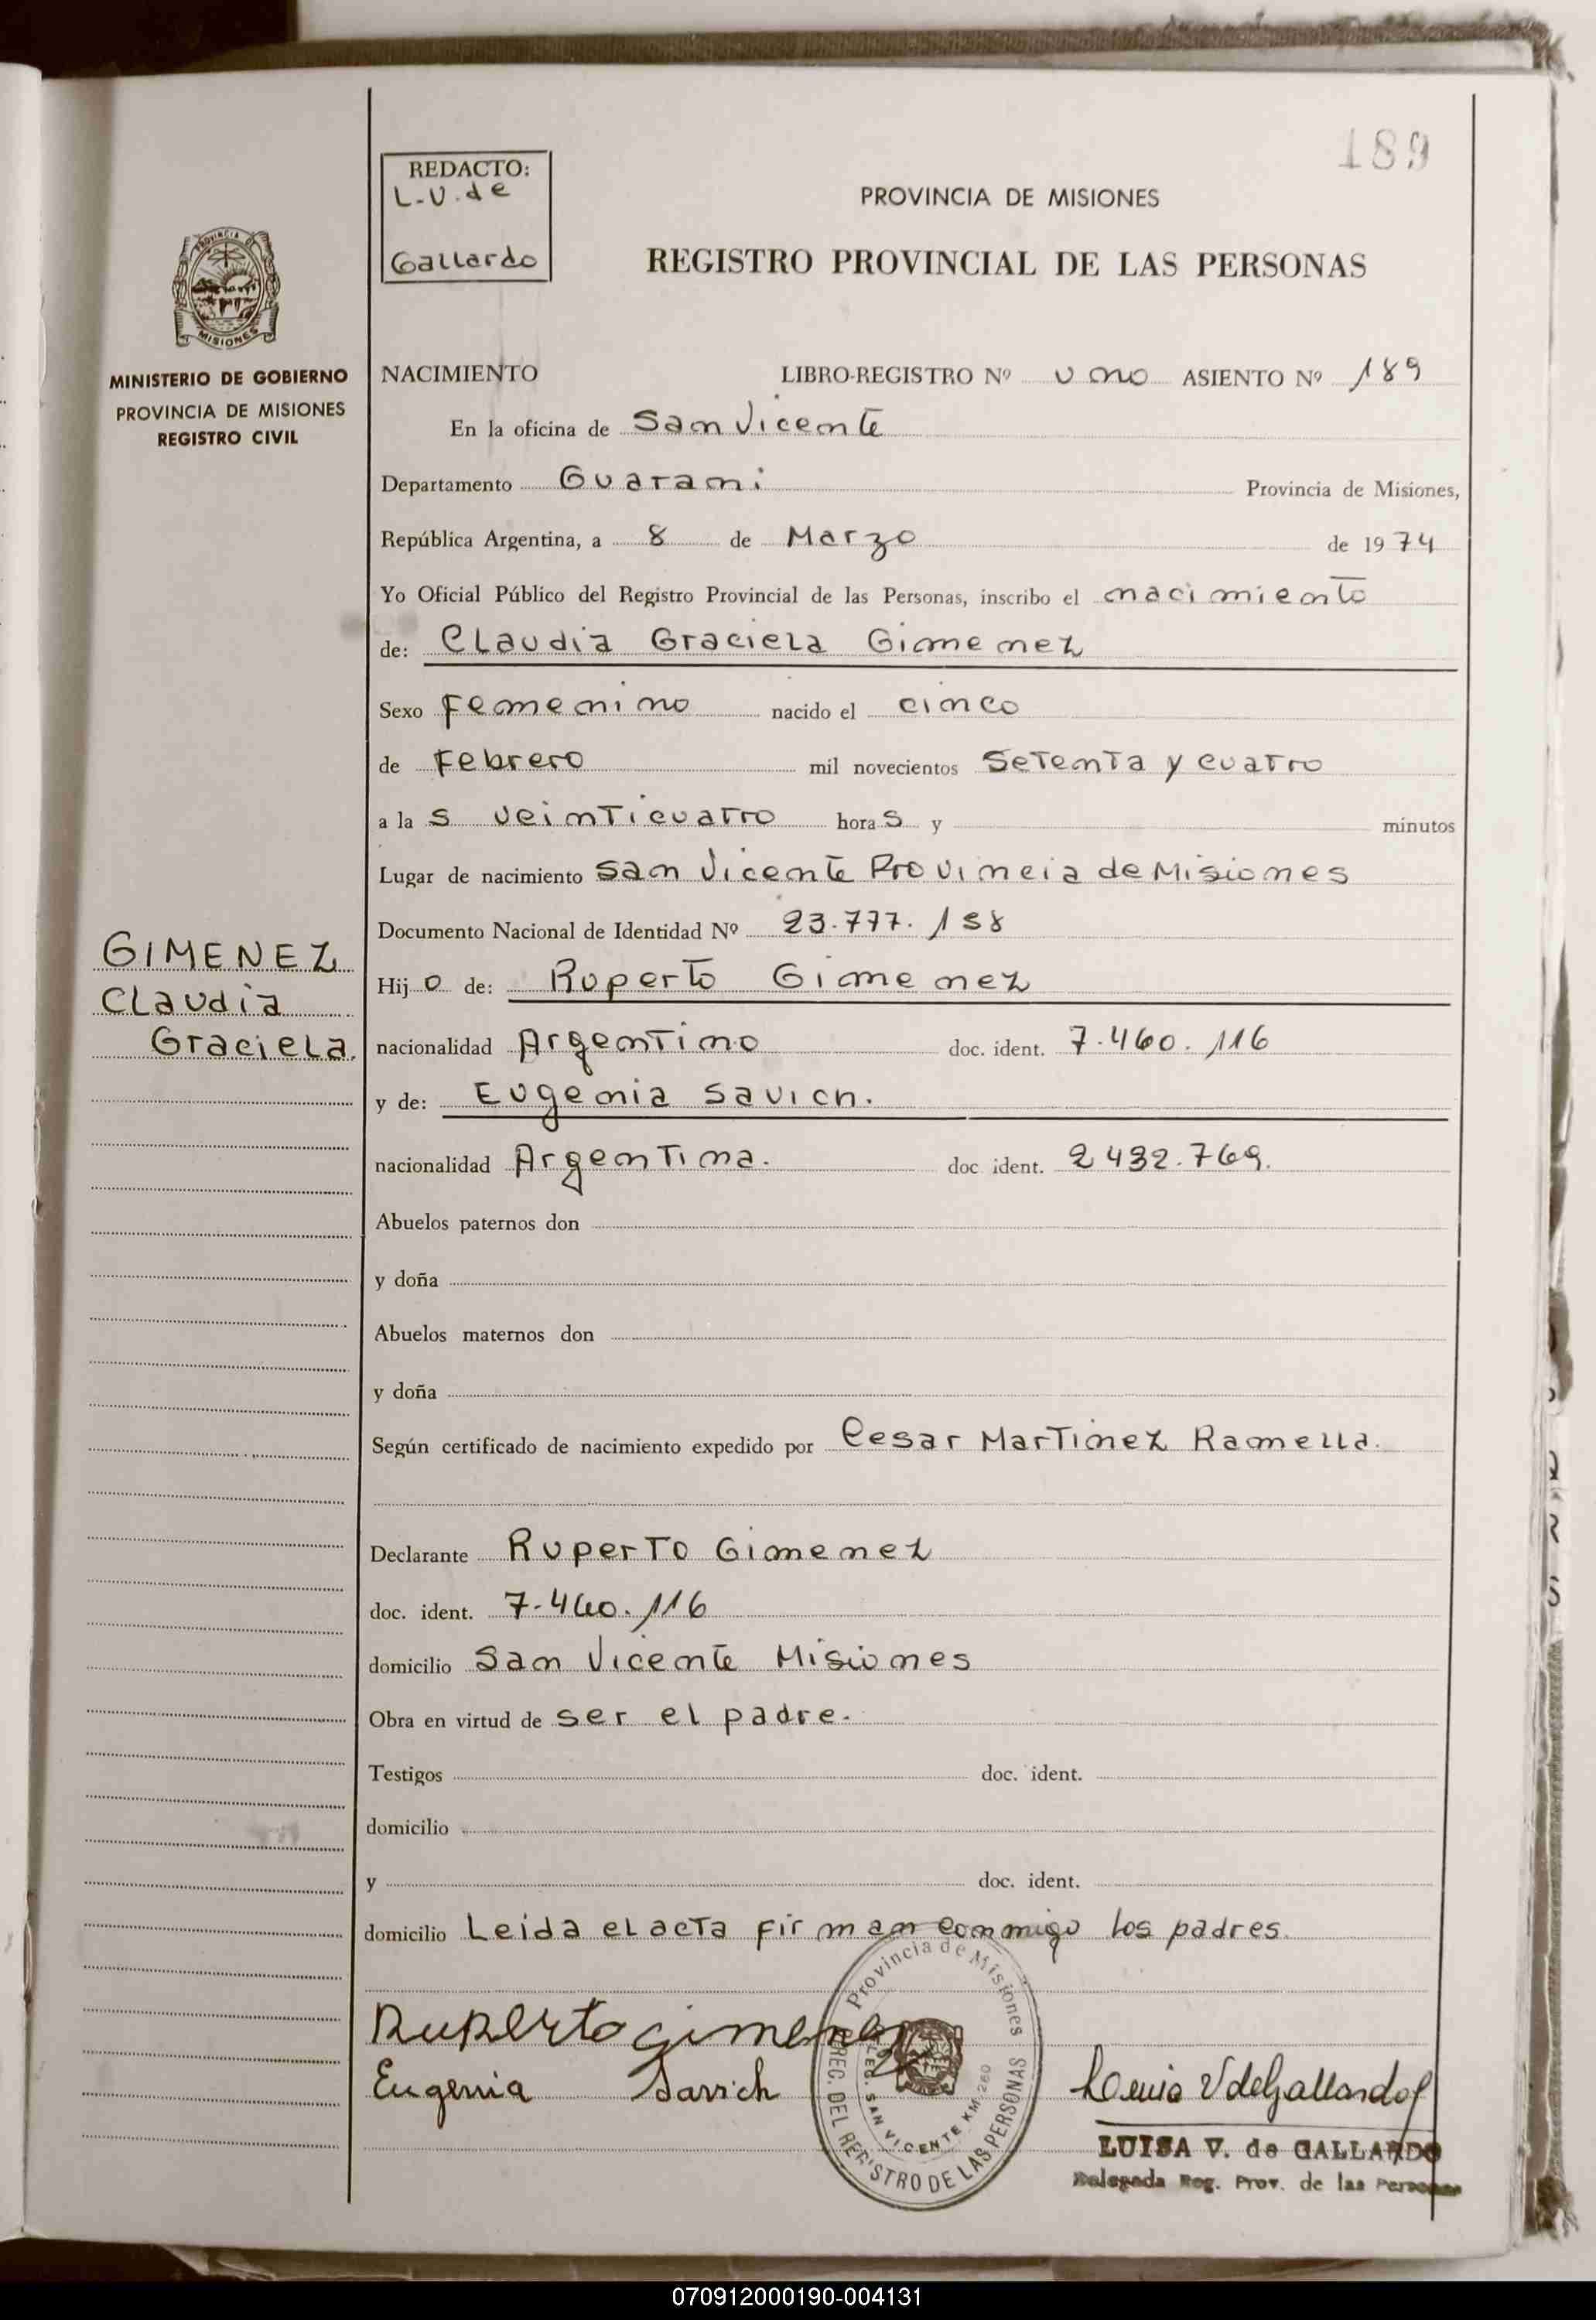 189
REDACTO:
L-V. de
Gallardo
PROVINCIA DE MISIONES
REGISTRO PROVINCIAL DE LAS PERSONAS
PROVINCIA DE
MISIONES
MINISTERIO DE GOBIERNO
PROVINCIA DE MISIONES
REGISTRO CIVIL
NACIMIENTO LIBRO-REGISTRO Nº uno ASIENTO Nº 189
En la oficina de San Vicente
Departamento Guarani Provincia de Misiones,
República Argentina, a 8 de Marzo de 1974
Yo Oficial Público del Registro Provincial de las Personas, inscribo el nacimiento
de: Claudia Graciela Gimenez
Sexo Femenino nacido el cinco
de Febrero mil novecientos Setenta y cuatro
a las veinticuatro horas y minutos
Lugar de nacimiento San Vicente Provincia de Misiones
Documento Nacional de Identidad Nº 23.777.158
GIMENEZ
Claudia
Graciela.
Hijo de: Ruperto Gimenez
nacionalidad Argentino doc. ident. 7.460.116
y de: Eugenia Savich.
nacionalidad Argentina. doc ident. 2432.769.
Abuelos paternos don
y doña
Abuelos maternos don
y doña
Según certificado de nacimiento expedido por Cesar Martinez Ramella.
Declarante Ruperto Gimenez
doc. ident. 7-460.116
domicilio San Vicente Misiones
Obra en virtud de ser el padre.
Testigos doc. ident.
domicilio
y doc. ident.
domicilio Leida el acta firman conmigo los padres.
Ruperto Gimenez
Eugenia Savich
Provincia de Misiones
DEL REGISTRO DE LAS PERSONAS
DELEG. SAN VICENTE KM. 260
Luisa V de Gallardo
LUISA V. de GALLARDO
Delegada Reg. Prov. de las Personas
070912000190-004131